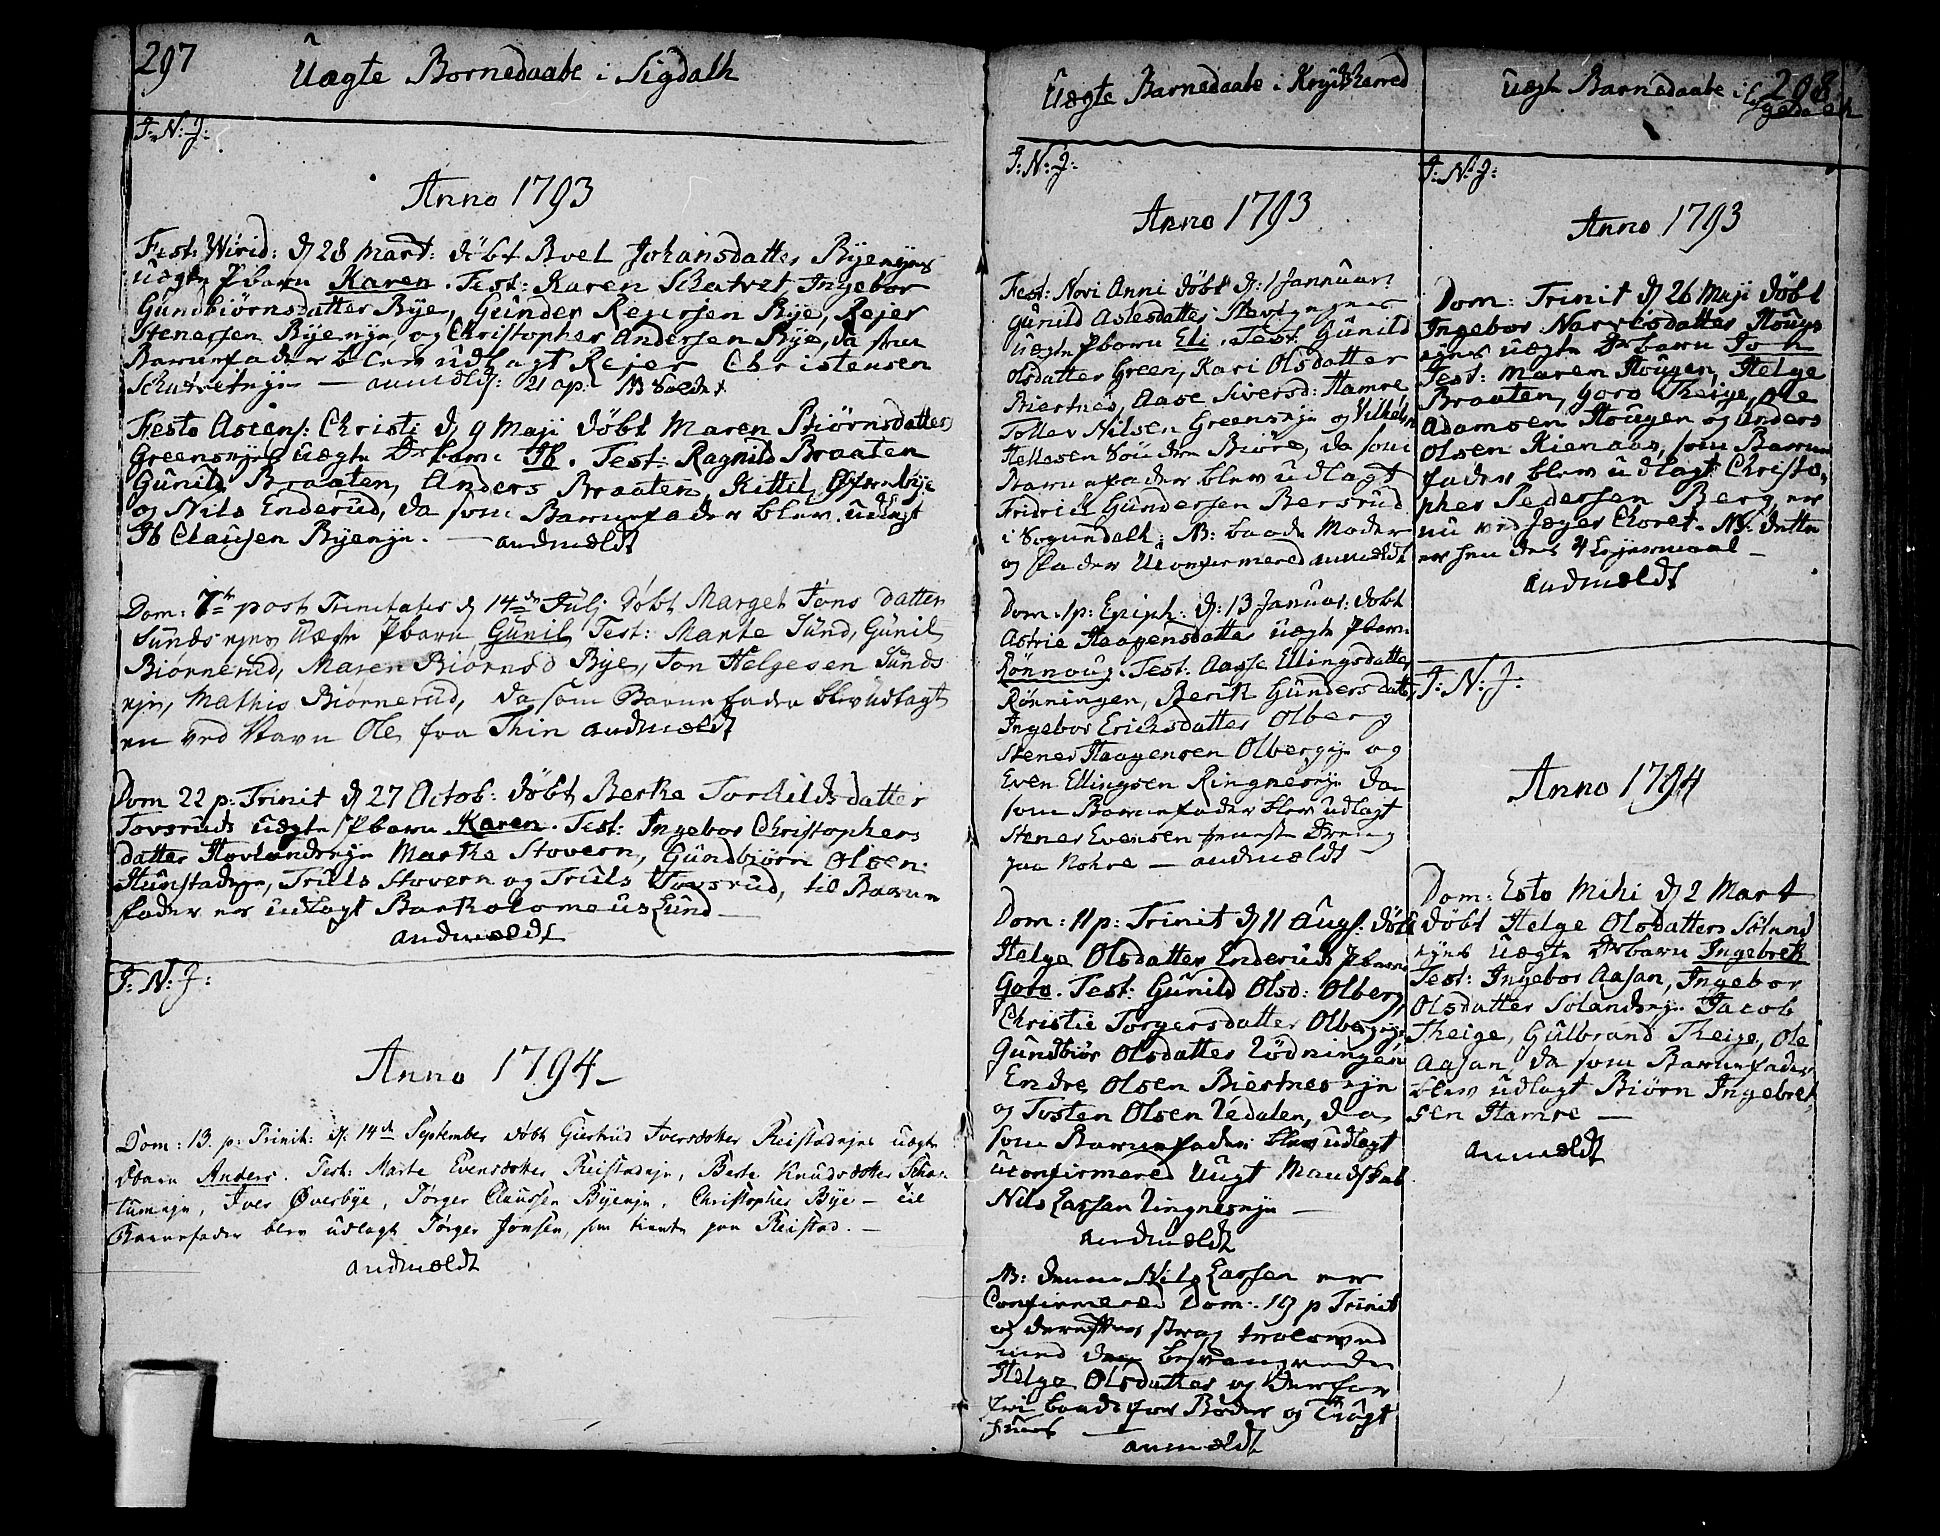 297
Uægte Bornedaabe i Sigdahl
J: N: J:
Anno 1793
Fest: Virid: d 28 Mart: döbt Boel Johansdatter Byeneyes
Uægte Pbarn Karen. Test: Karen Schatvet, Ingebor
Gundbiörnsdatter Bye, Gunder Rejersen Bye, Rejer
Stenersen Byeneye, og Christopher Andersen Bye, da som
Barnefader blev udlagt Rejer Christensen
Schatvetneye — anmeldt: 21 ap:
Festo Ascens: Christi d 9 Maji döbt Maren Biörnsdatter
Greenseyes uægte Drbarn Ib. Test: Ragnild Braaten
Gunild Braaten, Anders Braaten, Kittil Öfverbye
og Nils Enderud, da som Barnefader blev udlagt
Ib Clausen Byeneye. — anmeldt
Dom: 7de post Trinitatis d 14de Julj döbt Marget Jons datter
Sundseyes Uægte Pbarn Gunil Test: Marte Sund, Gunil
Biornerud, Maren Biornsd Bye, Jon Helgesen Sunds
eye, Mathis Biornerud, da som Barnefader blev udlagt
en ved Navn Ole fra Thin anmeldt
Dom 22 p: Trinit d 27 Octob: döbt Berthe Torkildsdatter
Tovsruds uægte Pbarn Karen. Test: Ingebor Christophers
datter Hovlandseye Marthe Stovern, Gundbiörn Olsen
Hunstadeye, Truls Stovern og Truls Tovsrud, til Barne
fader er udlagt Bartholomeus Lund —
anmeldt
J: N: J:
Anno 1794 —
Dom: 13. p: Trinit: d: 14de September döbt Giertrud Iversdatter Reistadeyes uægte
Dbarn Anders. Test: Marte Evensdatter Reistadeye, Berte Knudsdatter Scha-
tumeye, Iver Øverbye, Törger Claussen Byeneye, Christopher Bye — til
Barnefader blev udlagt Törger Jonsen, som tiente paa Reistad. —
anmeldt
Uægte Barnedaabe i Krydsherred
J: N: J:
Anno 1793
Fest: Novi Anni döbt d: 1 Januar:
Gunild Aslesdatter
uægte Pbarn Eli. Test: Gunild
Olsdatter Green, Kari Olsdatter
Biertnes, Aase Siversd: Hamre
Tollev Nilsen Greenseye og Vilhelm
Hellesen Söndre Biöre, da som
Barnefader blev udlagt
Fridrich Gundersen Bersrud
i Sogundahl. NB: baade Moder
og Fader Uconfirmered anmeldt
Dom. 1 p: Epiph: d: 13 Januar: döbt
Astrie Haagensdatter uægte Pbarn
Rönnoug. Test: Aasse Ellingsdatter
Rönningen, Berit Gundersdatter
Ingebor Erichsdatter Olberg
Stener Haagensen Olbergeye og
Even Ellingsen Ringneseye da
som Barnefader blev udlagt
Stener Evensen tienste Dreng
paa Nohre — anmeldt
Dom: 11 p: Trinit d 11 Augs: döbt
Helge Olsdatter Enderuds Pbarn
Goro. Test: Gunild Olsd: Olberg
Christie Torgersdatter Olbergeye
Gundbiör Olsdatter Lödningen
Endre Olsen Biertnes eye
og Tosten Olsen Vedalen, da
som Barnefader blev udlagt
uconfirmered Ungt Mandskab
Nils Larsen Ringneseye —
anmeldt
NB: denne Nils Larsen er
Confirmered Dom: 19 p Trinit
og derefter strax troloved
med den besvangrede
Helge Olsdatter og derfor
fri baade for Böder og Tugt
huus — anmeldt
298
Uægte Barnedaabe i
J: N: J:
Anno 1793
Dom: Trinit d 26 Maji döbt
Ingebor Narvesdatter Hougs
eyes uægte Drbarn
Test: Maren Hougen, Helge
Braaten, Goro Theige, Ole
Adamsen Hougen og Anders
Olsen Kienaas, som Barne
fader blev udlagt Christo-
pher Pedersen Berg, er
nu ved Jæger Choret. NB: dette
er hendes 4 Leyermaal —
anmeldt
J: N: J:
Anno 1794
Dom: Esto Mihi d 2 Mart
döbt Helge Olsdatters Soland
eyes uægte Drbarn Ingebret
Test: Ingebor Aasan, Ingebor
Olsdatter Solandseye Jacob
Theige, Gulbrand Theige, Ole
Aasan, da som Barnefader
blev udlagt Biörn Ingebret
sen Hamre —
anmeldt